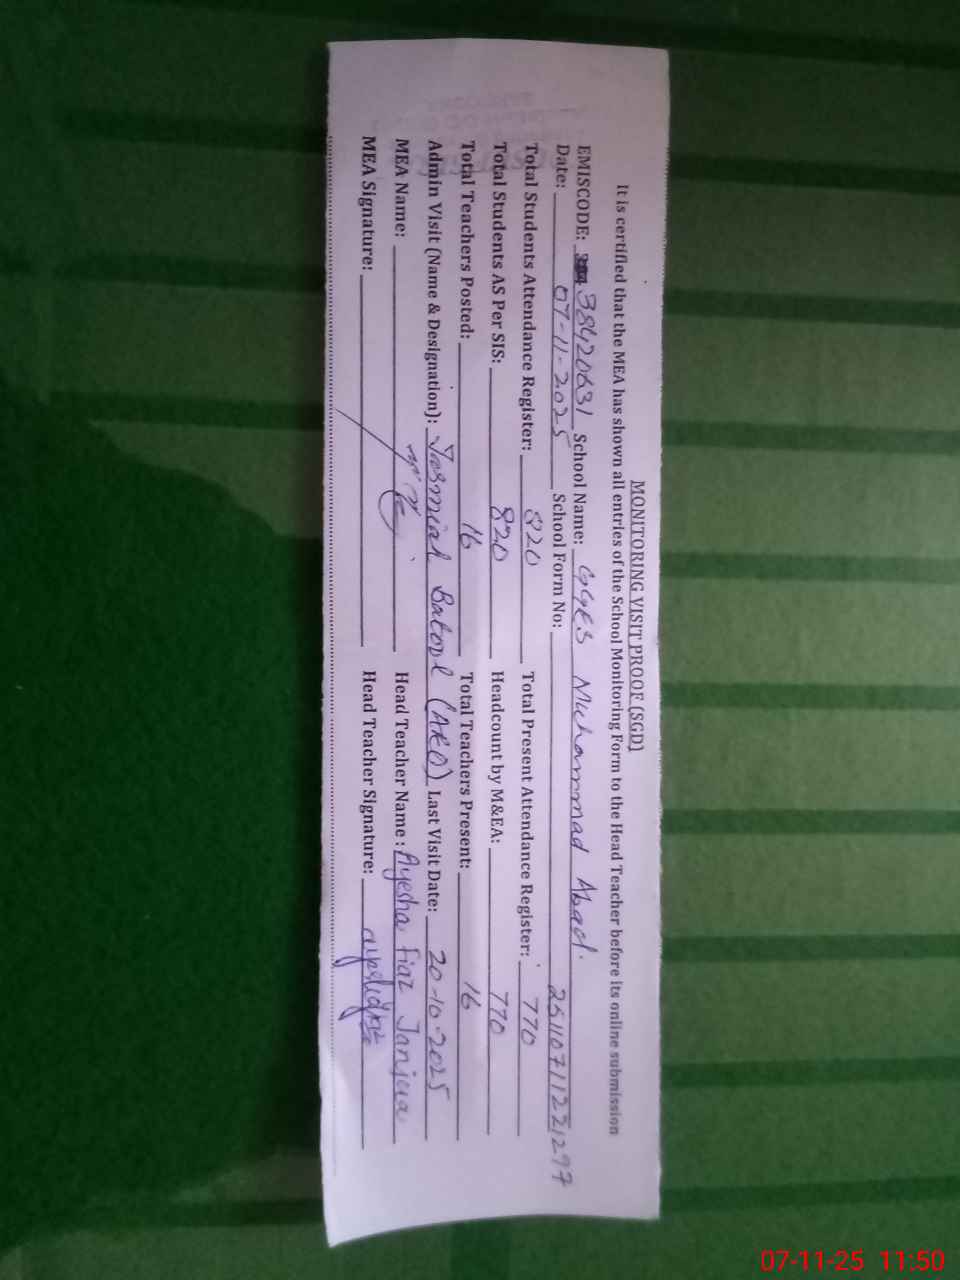 MONITORING VISIT PROOF (SGD)
It is certified that the MEA has shown all entries of the School Monitoring Form to the Head Teacher before its online submission
EMISCODE: 38420631 School Name: GGES Muhammad Abad.
Date: 07-11-2025 School Form No: 25110711221297
Total Students Attendance Register: 820 Total Present Attendance Register: 770
Total Students AS Per SIS: 820 Headcount by M&EA: 770
Total Teachers Posted: 16 Total Teachers Present: 16
Admin Visit (Name & Designation): Jasmiah Batool (AEO) Last Visit Date: 20-10-2025
MEA Name: Head Teacher Name : Ayesha Fiaz Janjua
MEA Signature: Head Teacher Signature:
07-11-25 11:50